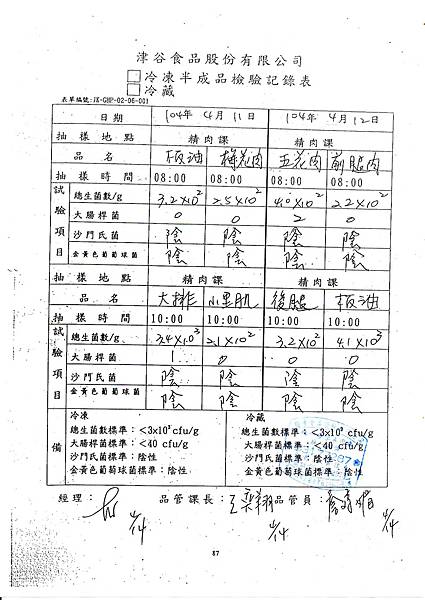 津谷食品股份有限公司
□冷凍半成品檢驗記錄表
□冷藏
表單編號:JK-GHP-02-06-001
日期 104年 4月 11日 104年 4月 12日
抽樣地點 精肉課 精肉課
品名 板油 梅花肉 五花肉 前腿肉
抽樣時間 08:00 08:00 08:00 08:00
試驗項目
總生菌數/g 3.2×10² 2.5×10² 4.0×10² 2.2×10²
大腸桿菌 0 0 2 0
沙門氏菌 陰 陰 陰 陰
金黃色葡萄球菌 陰 陰 陰 陰
抽樣地點 精肉課 精肉課
品名 大排 小里肌 後腿 板油
抽樣時間 10:00 10:00 10:00 10:00
試驗項目
總生菌數/g 3.4×10³ 2.1×10² 3.2×10² 4.1×10³
大腸桿菌 1 0 0 0
沙門氏菌 陰 陰 陰 陰
金黃色葡萄球菌 陰 陰 陰 陰
備
冷凍 冷藏
總生菌數標準：<3x10⁶ cfu/g 總生菌數標準：<3x10⁶ cfu/g
大腸桿菌標準：<40 cfu/g 大腸桿菌標準：<40 cfu/g
沙門氏菌標準：陰性 沙門氏菌標準：陰性
金黃色葡萄球菌標準：陰性 金黃色葡萄球菌標準：陰性
經理： 品管課長： 品管員：
4/14 4/14 4/14
87